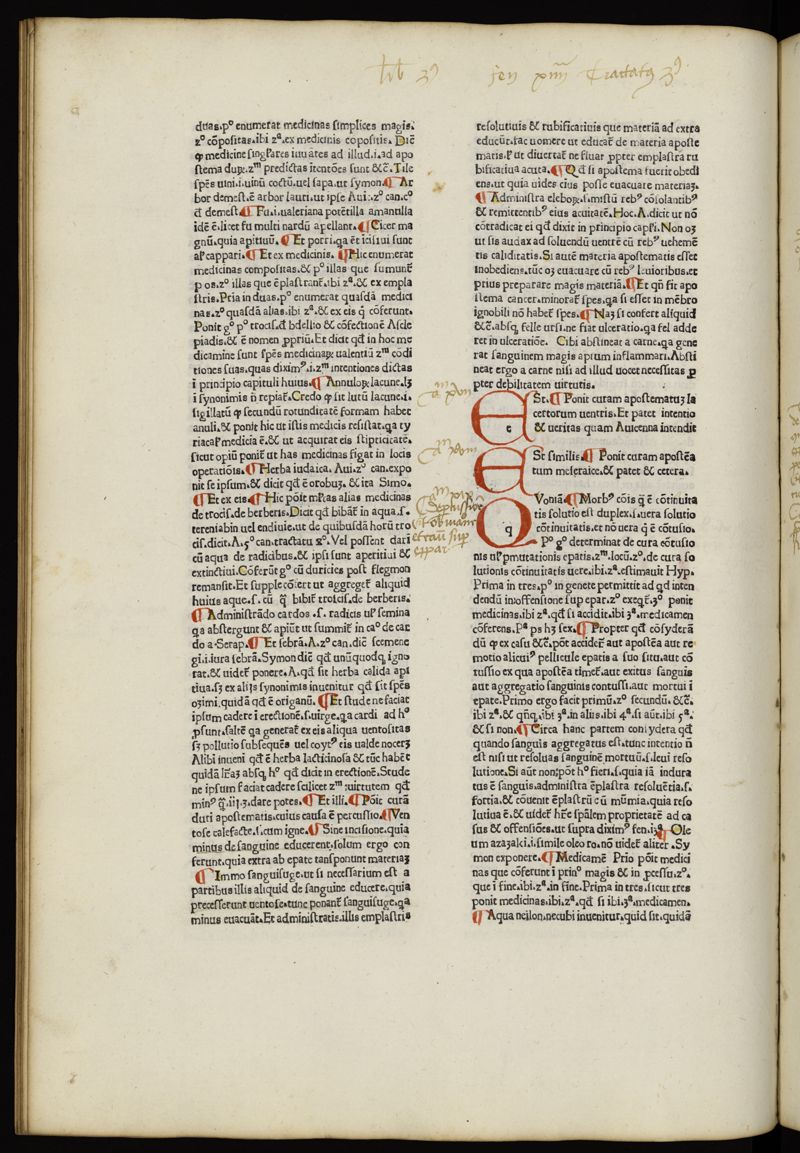 lib 3ꝰ fen xiiii Tractatꝰ 3ꝰ
duas.pº enumerat medicinas simplices magis.
zº cōpositas.ibi zª.ex medicinis copositis. Dic̄
ꝙ medicine singl'ares iuuātes ad illud.i.ad apo
stema dupl'.zᵐ predictas itentōes sunt &c̄. Tile
sp̄es uini.i.uinū coctū.uel sapa.ut symon. Ar
bor demest.ē arbor lauri.ut ip̄e Aui.zº can.cº
ꝗ demest. Fu.i.ualeriana potētilla amantilla
idē ē.licet fu multi nardū apellant. Cicer ma
gnū.quia apitiuū. Et porri.ꝗa ēt icisiui sunt
al' cappari. Et ex medicinis. Hic enumerat
medicinas compositas.& pº illas que sumunt̄
p os.zº illas que ēplastrant̄.ibi zª.& ex empla
stris. Pria in duas.pº enumerat quasdā medici
nas.zº quasdā alias.ibi zª.& ex eis ꝗ cōferunt.
Ponit gº pº trocis.ꝗ bdellio & cōfectionē Ascle
piadis.& ē nomen ꝓpriū. Et dicit qd̄ in hoc me
dicamine sunt sp̄es medicinaꝝ ualentiū zᵐ cōdi
tiones suas.quas dixim⁹.i.zᵐ intentiones dictas
i principio capituli huius. Annuloꝝ lacune.lꝫ
i synonimis n̄ repiat̄. Credo ꝙ sit lutū lacune.i.
sigillatū ꝙ secundū rotunditatē formam habet
anuli.& ponit hic ut istis medicis resistat.ꝗa ty
riacal' medicia ē.& ut acquirat eis stipticitatē.
sicut opiū ponit̄ ut has medicinas figat in locis
operatiōis. Herba iudaica. Aui.zº can.expo
nit se ipsum.& dicit qd̄ ē orobuꝫ. & ita Simo.
Et ex eis. Hic pōit ml'tas alias medicinas
de trocis.de berberis. Dicit qd̄ bibāt̄ in aqua.s.
tereniabin uel endiuie.ut de quibusdā horū tro
cis.dicit. A.5º can.tractatu 8º. Vel possent dari
cū aqua de radicibus.& ipsi sunt aperitiui &
extinctiui. Cōferūt gº cū duricies post flegmon
remansit. Et supple cōfert ut aggreget̄ aliquid
huius aque.s. cū ꝗ bibit̄ trocis.de berberis.
Administrādo cardos .s. radicis ul' semina
ꝗa abstergunt & apiūt ut summit̄ in caº de car
do a Serap. Et sebrā. A.zº can.diē scemene
gi.i.iura sebrā. Symon diē qd̄ unūquodꝗ igno
rat.& uidet̄ ponere. A.qd̄ sit herba calida api
tiua.sꝫ ex alijs synonimis inuenitur qd̄ sit sp̄es
oꝫimi.quidā qd̄ ē origanū. Et stude ne faciat
ipsum cadere i erectionē.s.uirge.ꝗa cardi ad h⁹
ꝓsunt.saltē ꝗa generat̄ ex eis aliqua uentositas
sꝫ pollutio subsequēs uel coyt⁹ eis ualde nocet
Alibi inueni qd̄ ē herba lacticinosa & tūc habēt
quidā lr̄aꝫ absꝗ h⁹ qd̄ dicit in erectionē. Stude
ne ipsum faciat cadere scilicet zᵐ uirtutem qd̄
min⁹ ꝗ̄.iij.ʒ.dare potes. Et illi. Pōit curā
ducti apostematis.cuius causa ē percussio. Ven
tose calefacte.s.cum igne. Sine incisione.quia
minus de sanguine educerent.solum ergo con
ferunt.quia extra ab epate tansponunt materiaꝫ
Immo sanguisuge.ut si necessarium est a
partibus illis aliquid de sanguine educere.quia
precesserunt uentose.tunc ponant̄ sanguisuge.ꝗa
minus euacuāt. Et administratis.illis emplastris
resolutiuis & rubificatiuis que materiā ad extra
educūt.fac uomere ut educat̄ de materia aposte
matis. l' ut diuertat̄ ne fluat ꝓpter emplastra ru
bificatiua acuta. Qd̄ si apostema fuerit obedi
ens.ut quia uides eius posse euacuare materiaꝫ.
Administra eleboꝝ.s.mistū reb⁹ cōsolantib⁹
& remittentib⁹ eius acuitatē. Hoc. A.dicit ut nō
contradicat ei qd̄ dixit in principio capl'i. Non oꝫ
ut sis audax ad soluendū uentrē cū reb⁹ uehemē
tis caliditatis. Si autē materia apostematis esset
inobediens.tūc oꝫ euacuare cū reb⁹ leuioribus.et
prius preparare magis materiā. Et qn̄ fit apo
stema cancer.minorat̄ spes.ꝗa si esset in mēbro
ignobili nō habet̄ spes. Naꝫ si confert aliquid
&c̄.absꝗ felle ursi.ne fiat ulceratio.ꝗa fel adde
ret in ulceratiōe. Cibi abstineat a carne.ꝗa gene
rat sanguinem magis aptum inflammari. Absti
neat ergo a carne nisi ad illud uocet necessitas ꝓ
pter debilitatem uirtutis.
ESt. Ponit curam apostematuꝫ la
certorum uentris. Et patet intentio
& ueritas quam Auicenna intendit
ESt similis. Ponit curam apostēa
tum meseraice.& patet & cetera.
QVoniā Morb⁹ cōis ꝗ ē cōtinuita
tis solutio est duplex.s.uera solutio
cōtinuitatis.et nō uera ꝗ ē cōtusio.
Pº gº determinat de cura cōtusio
nis ul' ꝑmutationis epatis.zᵐ.locū.zº.de cura so
lutionis cōtinuitatis uere.ibi.zª.estimauit Hyp.
Prima in tres.pº in genere permittit ad qd̄ inten
dendū inoffensione sup epar.zº exeqt̄.3º ponit
medicinas.ibi zª.qd̄ si accidit.ibi 3ª.medicamen
cōferens. Pª ps hꝫ sex. Propter qd̄ cōsyderā
dū ꝙ ex casu &c̄.pōt accider̄ aut apostēa aut re
motio alicui⁹ pellicule epatis a suo situ.aut cō
tussio ex qua apostēa timet̄.aut exitus sanguis
aut aggregatio sanguinis contussi.aut mortui i
epate. Primo ergo facit primū.zº secundū.&c̄.
ibi zª.& qn̄ꝗ.ibi 3ª.in aliis.ibi 4ª.si aūt.ibi 5ª.
& si non. Circa hanc partem consydera qd̄
quando sanguis aggregatus est.tunc intentio n̄
est nisi ut resoluas sanguinē mortuū.s.leui reso
lutione. Si aūt non pōt hº fieri.s.quia iā indura
tus ē sanguis.administra ēplastra resoluētia.s.
fortia.& cōuenit ēplastrū cū mumia.quia reso
lutiua ē.& uidet̄ hr̄e spālem proprietatē ad ca
sus & offensiōes.ut supra dixim⁹ fen.i.ꝫ. Ole
um azaꝫalci.i.simile oleo ro.nō uidet̄ aliter. Sy
mon exponere. Medicamē Prio pōit medici
nas que cōferunt i prin⁹ magis & in ꝓcessu.zº.
que i fine.ibi.zª.in fine. Prima in tres.sicut tres
ponit medicinas.ibi.zª.qd̄ si ibi.3ª.medicamen.
Aqua neilon.necubi inuenitur.quid sit.quidā